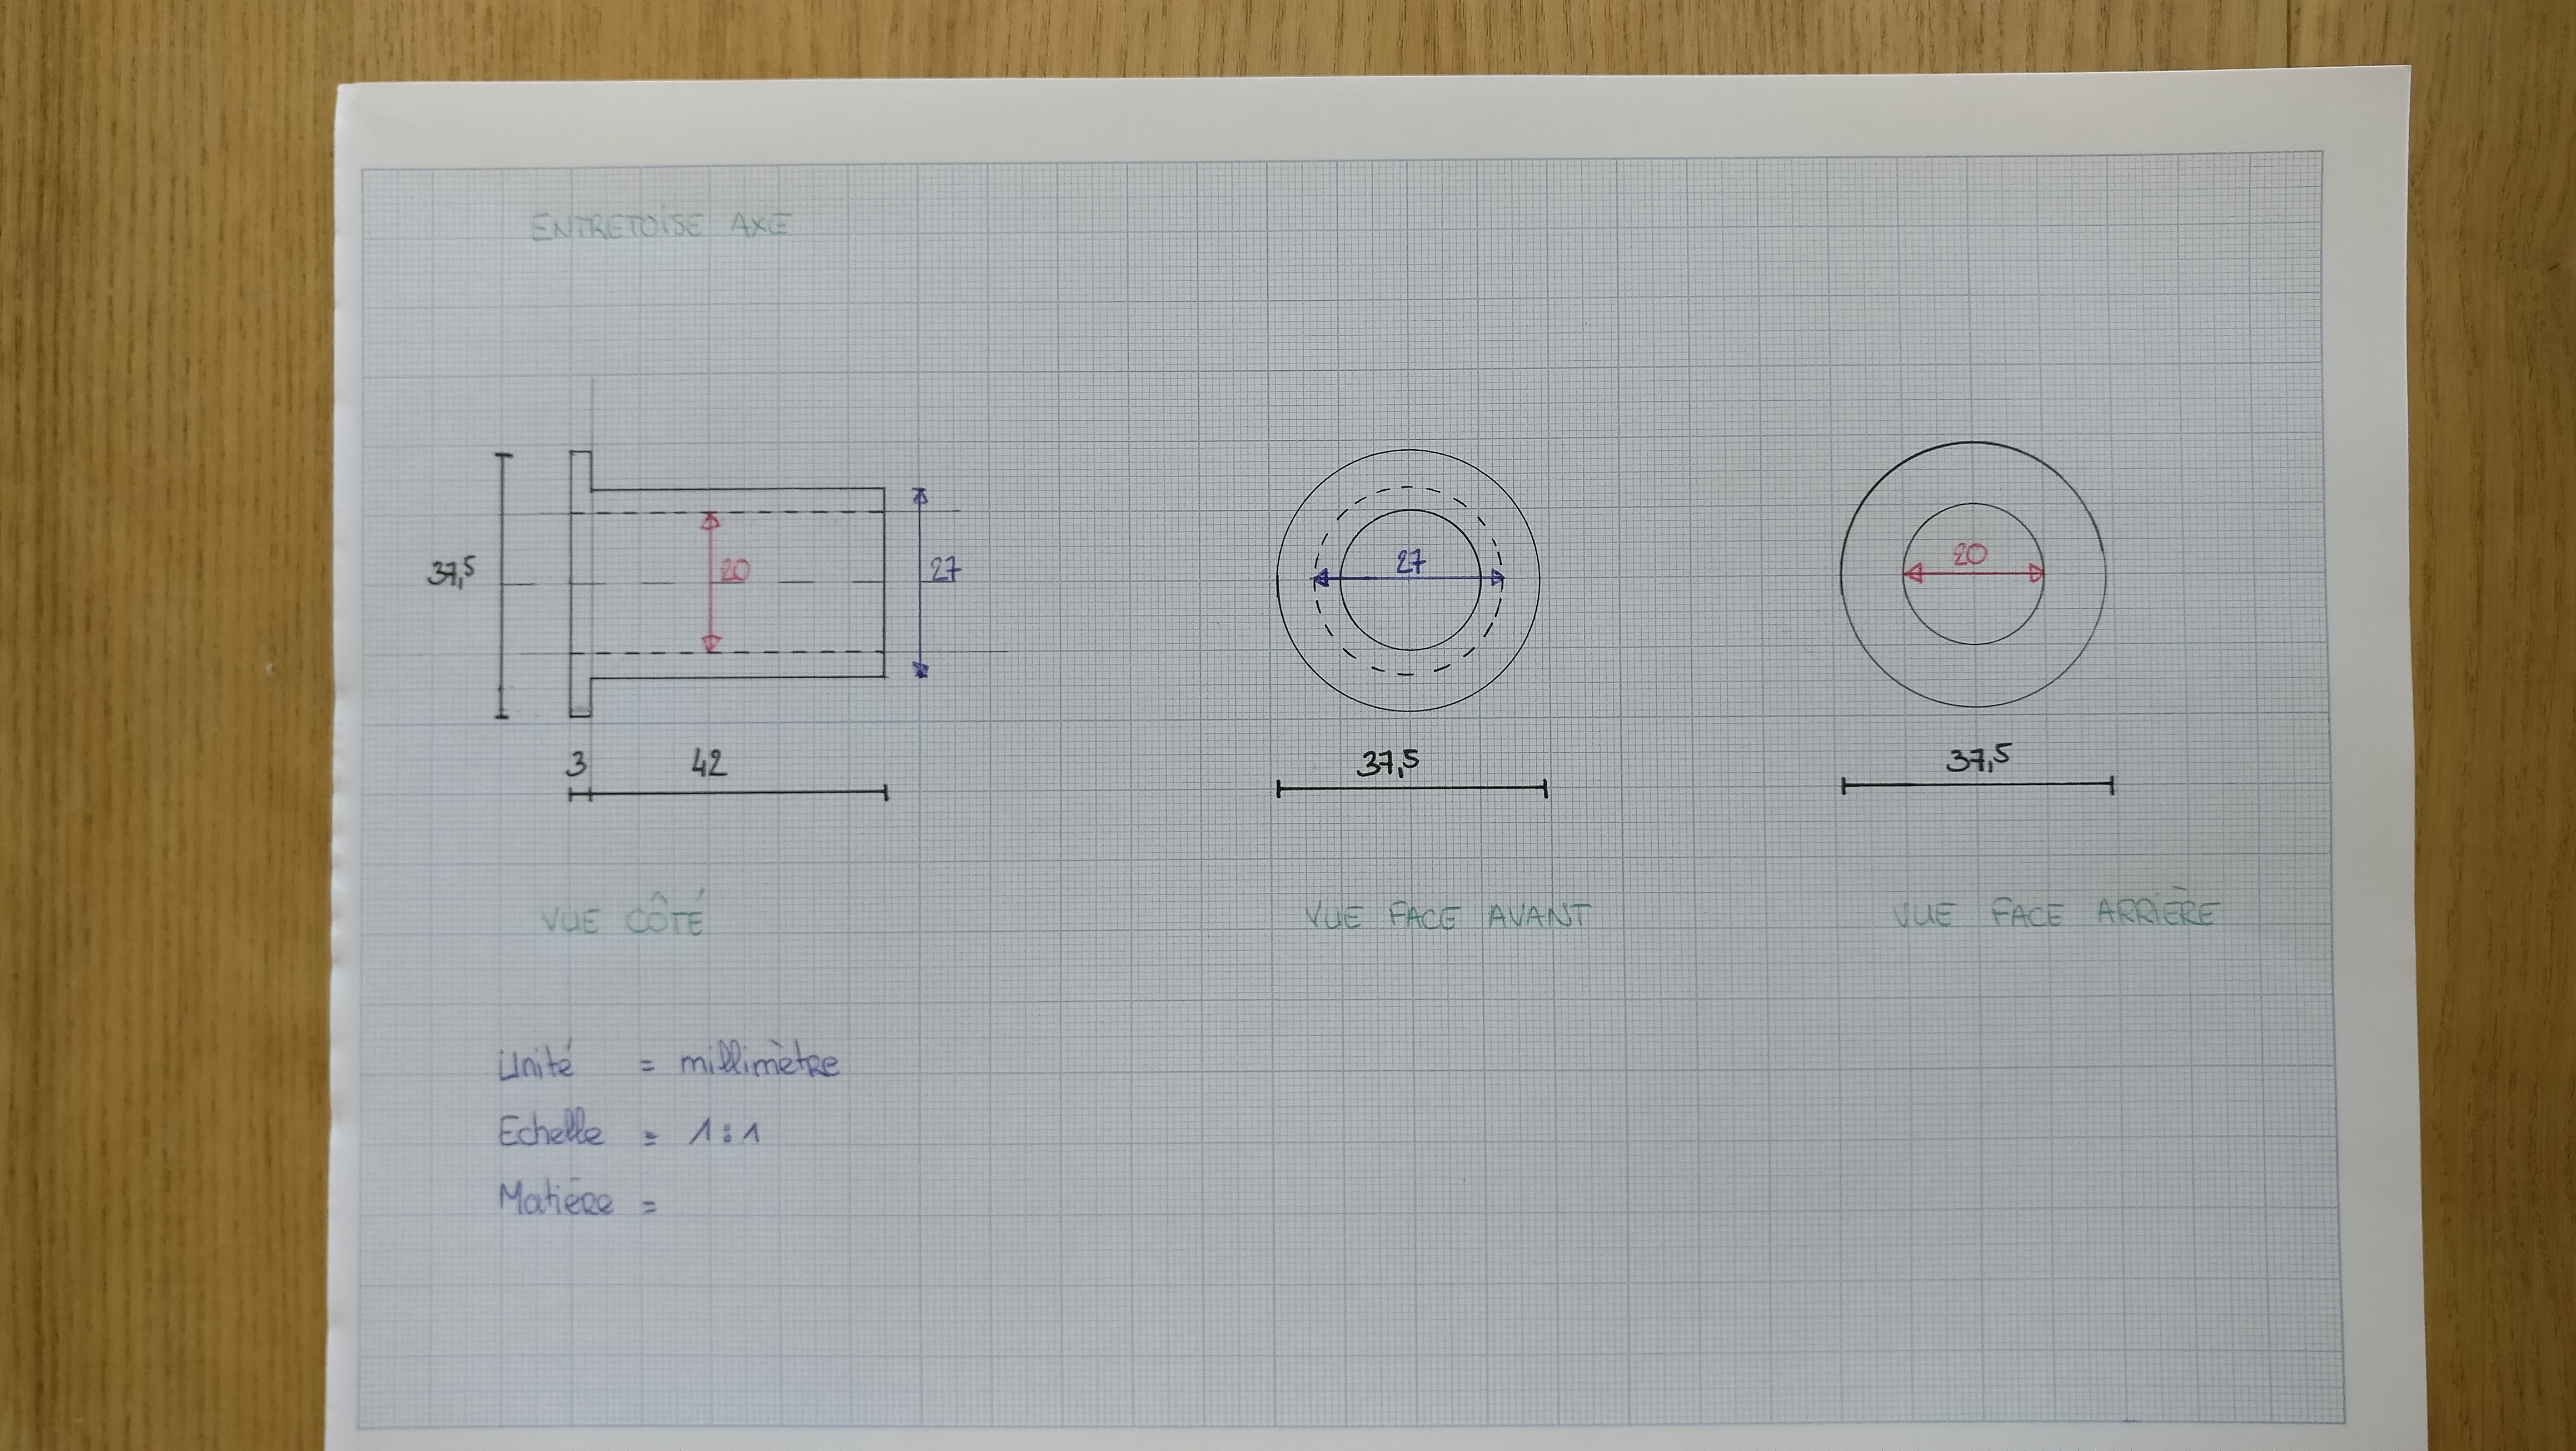 ENTRETOISE AXE
37,5
20
27
27
20
3
42
37,5
37,5
VUE CÔTÉ
VUE FACE AVANT
VUE FACE ARRIÈRE
Unité = millimètre
Echelle = 1:1
Matière =